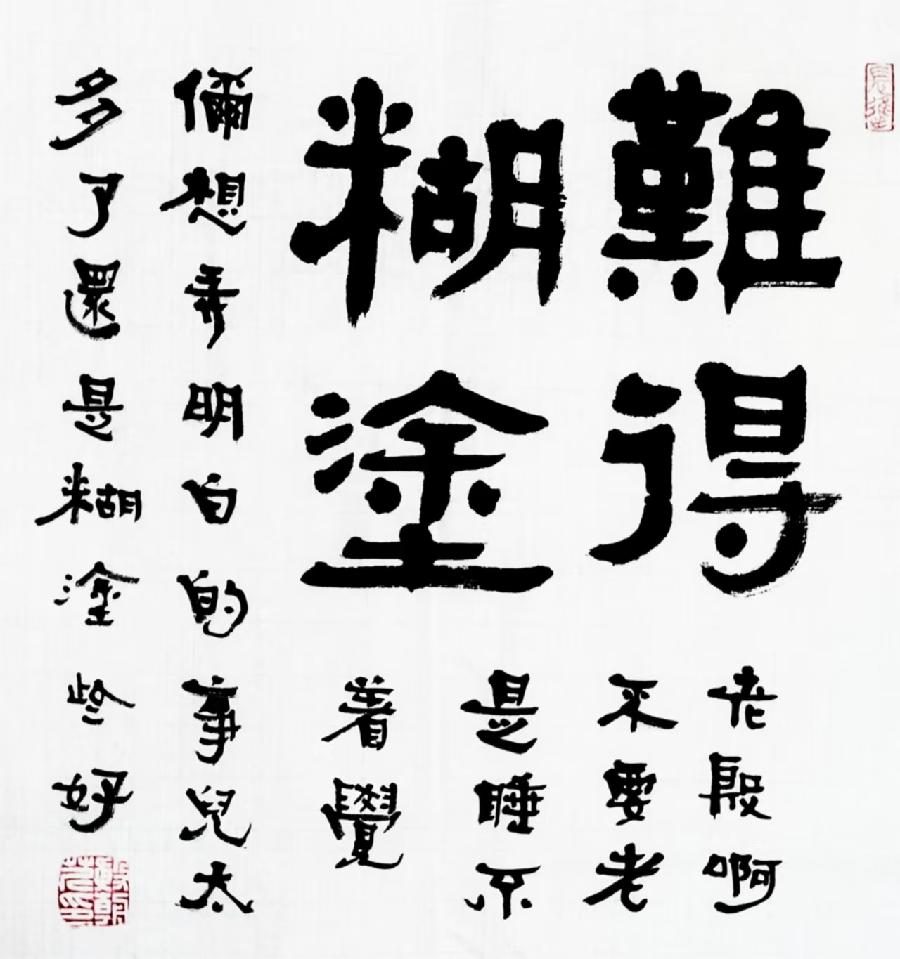 難得
糊塗
老殷啊
不要老
是睡不
着覺
儞想弄明白的事兒太
多了還是糊塗些好